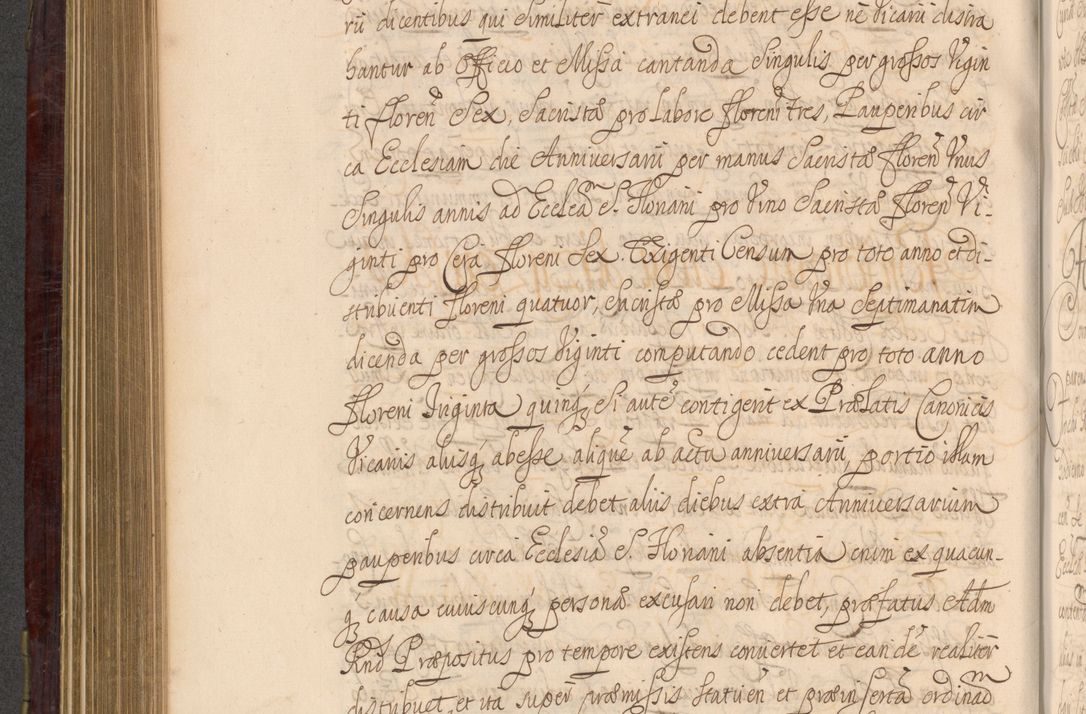 rii dicentibus qui similiter extranei debent esse ne Vicarii distra
hantur ab Officio et Missa cantanda Singulis per grossos Vigin
ti floren̄ Sex, Sacristæ pro labore floreni tres, Pauperibus cir
ca Ecclesiam die Anniversarii per manus Sacristæ floren̄ Unus
Singulis annis ad Eccleã S. Floriani pro Vino Sacristæ floren̄ Vi-
ginti pro Cera floreni Sex. Exigenti Censum pro toto anno et di-
stribuenti floreni quatuor, Sacristæ pro Missa Una Septimanatim
dicenda per grossos Viginti computando cedent pro toto anno
floreni Triginta quinq̢ Si autē contigerit ex Prælatis Canonicis
Vicariis aliisq̢ abesse aliquē ab actu anniversarii, portio illam
concernens distribuit debet aliis diebus extra Anniversarium
pauperibus circa Ecclesiã S. Floriani absentia enim ex quacun-
q̢ causa cuiuscunq̢ personæ excusari non debet, præfatus Adm
Rnd̄ Præpositus pro tempore existens convertet et eandē realiter
distribuet et ita super præmissis statuēn et præinserta ordinaō